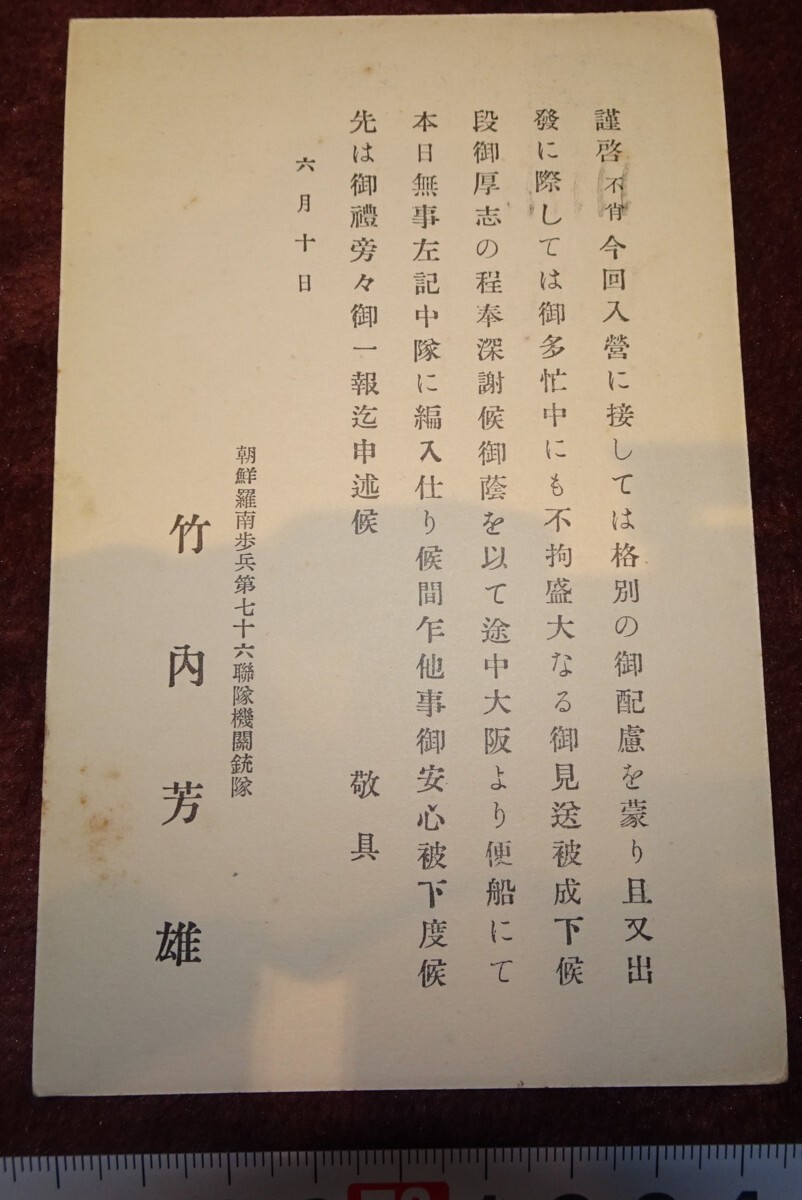 謹啓不肖今回入營に接しては格別の御配慮を蒙り且又出
發に際しては御多忙中にも不拘盛大なる御見送被成下候
段御厚志の程奉深謝候御蔭を以て途中大阪より便船にて
本日無事左記中隊に編入仕り候間乍他事御安心被下度候
先は御禮旁々御一報迄申述候
敬具
六月十日
朝鮮羅南步兵第七十六聯隊機關銃隊
竹內芳雄